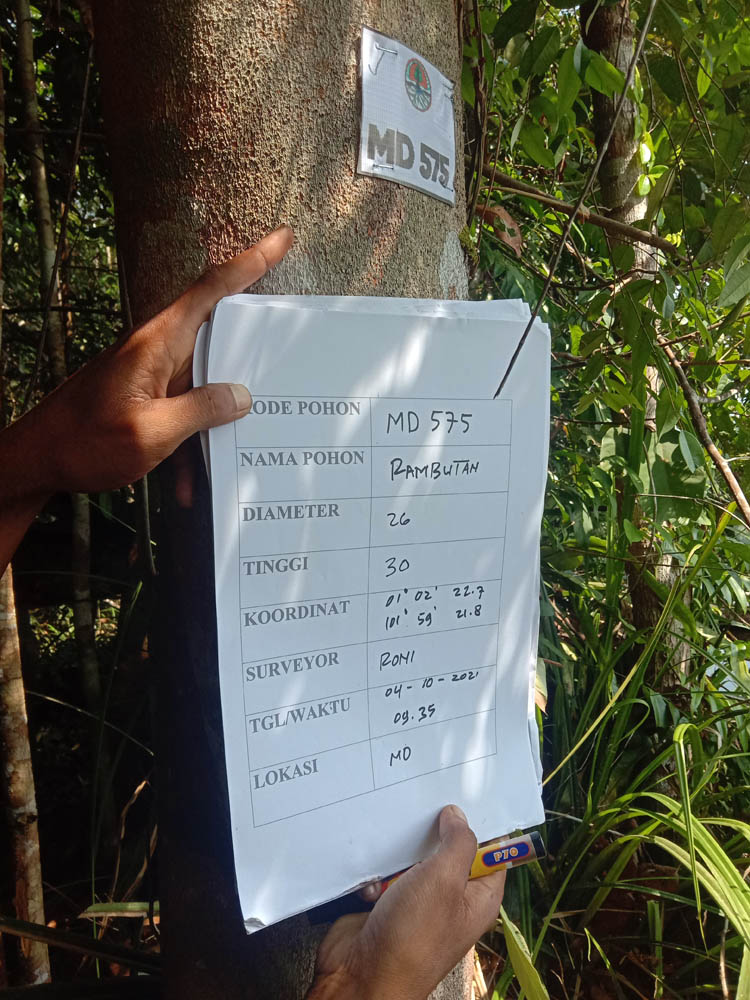 MD 575
KODE POHON MD 575
NAMA POHON RAMBUTAN
DIAMETER 26
TINGGI 30
KOORDINAT 01° 02' 22.7
101° 59' 21.8
SURVEYOR RONI
TGL/WAKTU 04-10-2021
09.35
LOKASI MD
P70